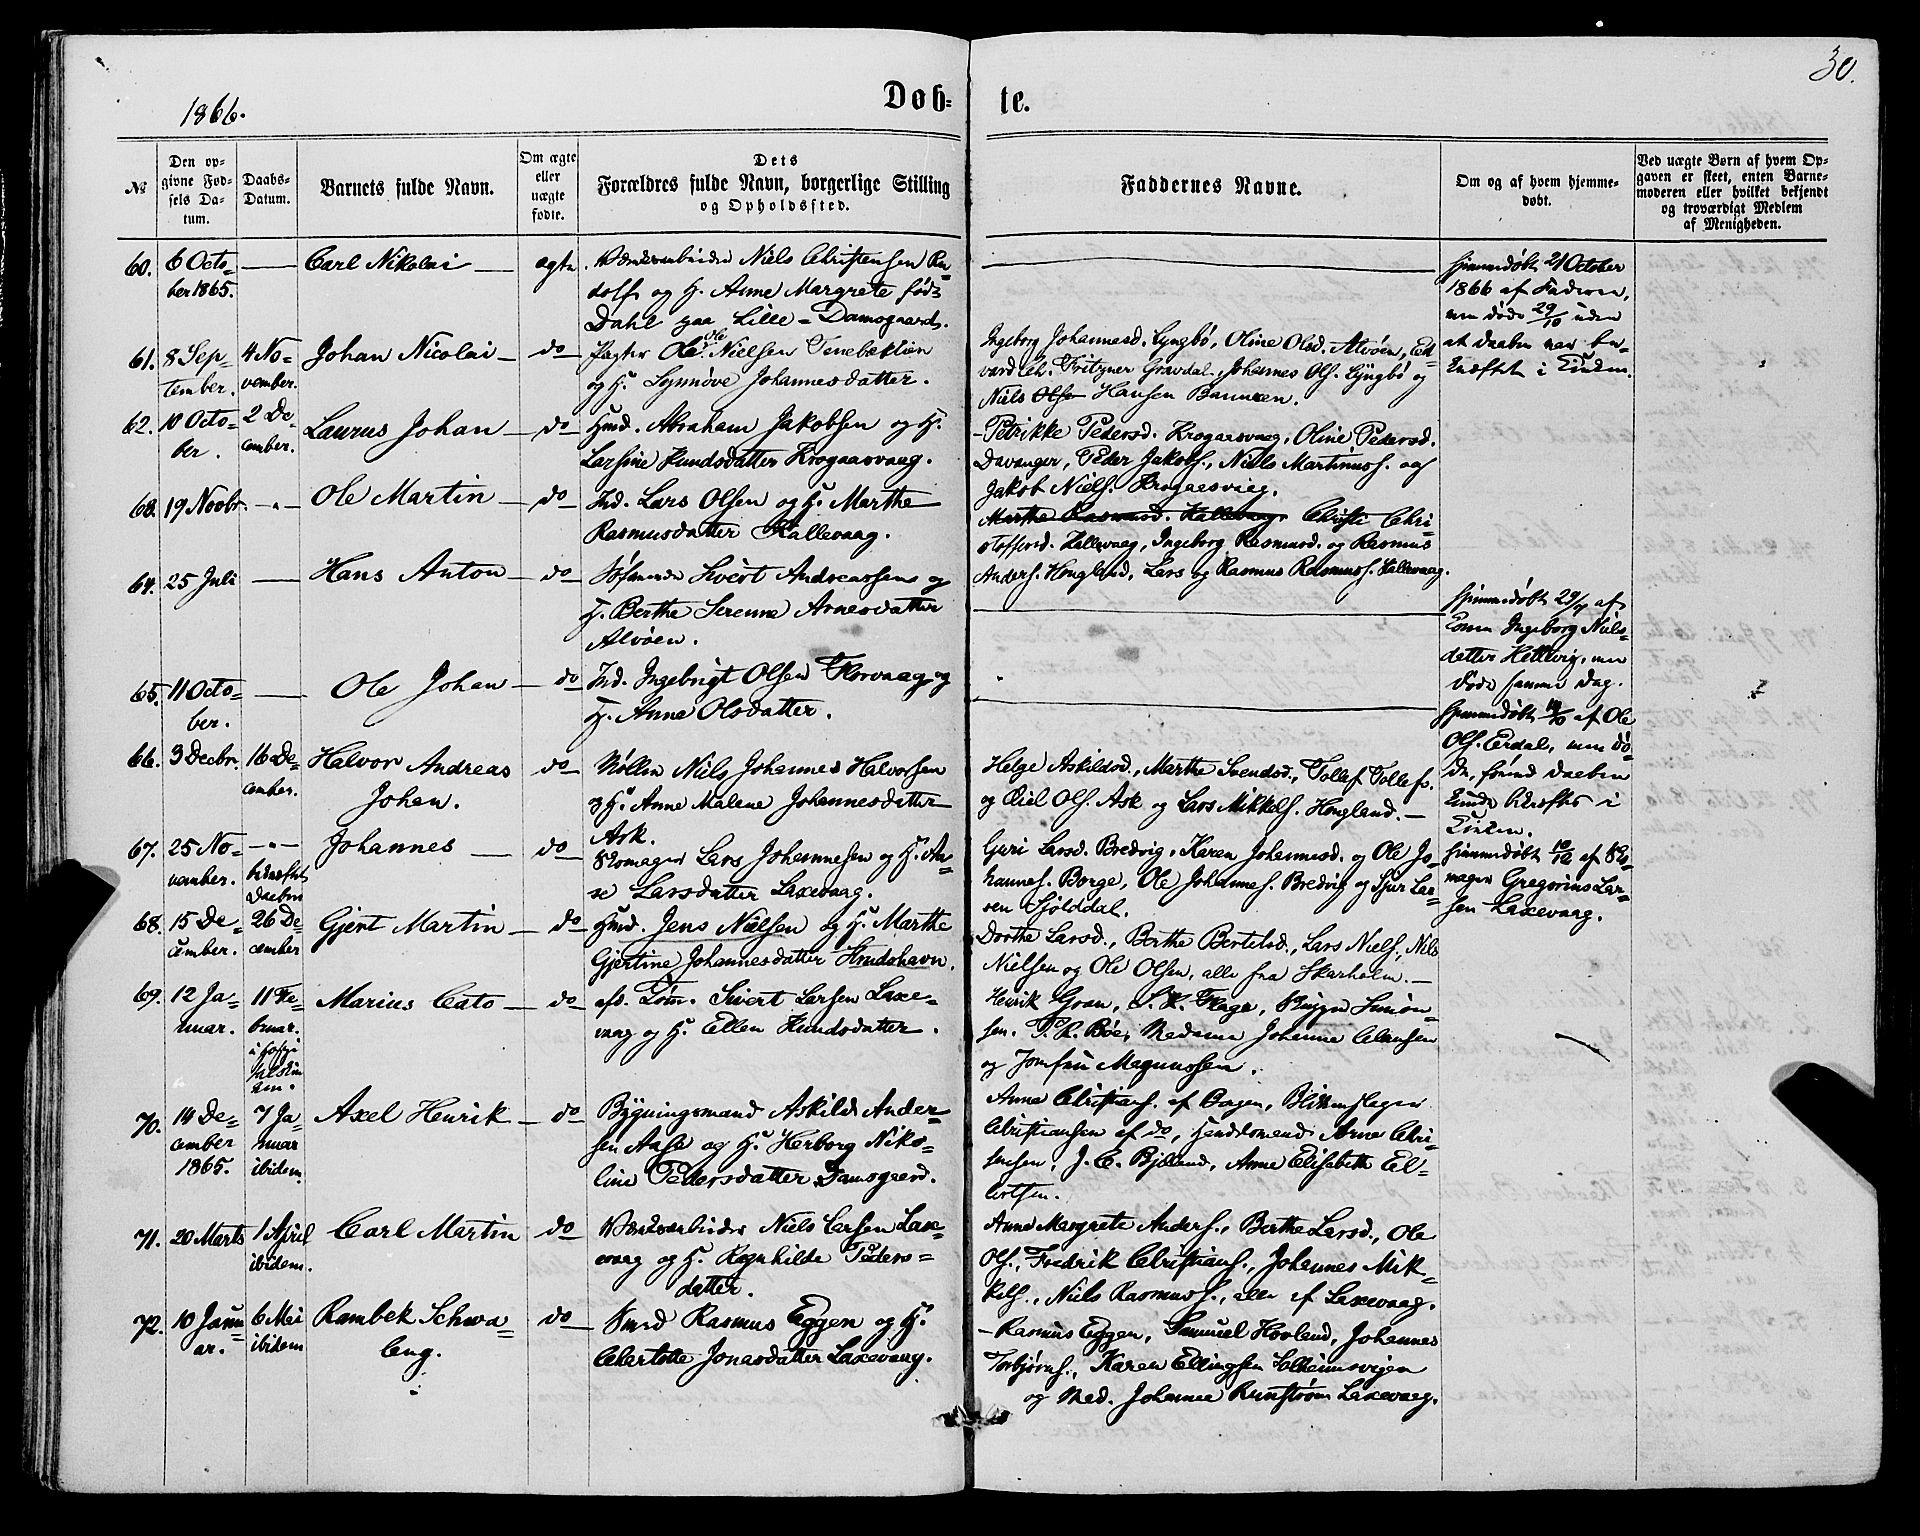 30.
1866.
Døb-
te.
№
Den op-
givne Fød-
sels Da-
tum.
Daabs-
Datum.
Barnets fulde Navn.
Om ægte
eller
uægte
fødte.
Dets
Forældres fulde Navn, borgerlige Stilling
og Opholdssted.
Faddernes Navne.
Om og af hvem hjemme-
døbt.
Ved uægte Børn af hvem Op-
gaven er skeet, enten Barne-
moderen eller hvilket bekjendt
og troværdigt Medlem
af Menigheden.
60.
6 Octo-
ber 1865.
Carl Nikolai
ægte
Niels Christensen
og H. Anne Margrete født
Dahl paa Lille-Damsgaard.
21 October
1866 af Faderen,
men døde 29/10 uden
at Daaben var
i Kirken.
61.
8 Sep-
tember.
4 No-
vember.
Johan Nicolai
do
Pagter Ole Nielsen
og H. Synnøve Johannesdatter.
Ingeborg Johannesd. Lyngbø, Oline Olsd. Alvøen, Ed-
vard Chr. Fritzner Gravdal, Johannes Ols. Lyngbø og
Niels Olsen Hansen
62.
10 Octo-
ber.
2 De-
cember.
Laurus Johan
do
Hmd. Abraham Jakobsen og H.
Larsine Knudsdatter Krogaasvaag.
Petrikke Pedersd. Krogaasvaag, Oline Pedersd.
Davanger, Peder Jakobs., Niels Martinuss. og
Jakob Niels. Krogaasvaag.
63.
19 Novbr.
-"-
Ole Martin
do
Ind. Lars Olsen og H. Marthe
Rasmusdatter Kallevaag.
Marthe Rasmusd. Kallevaag. Christi Chri-
stoffersd. Kallevaag, Ingeborg Rasmusd. og Rasmus
Anders. Hougland, Lars og Rasmus Rasmuss. Kallevaag.
64.
25 Juli
Hans Anton
do
Sivert Andreassen og
H. Berthe Serenne Arnesdatter
Alvøen.
29/7 af
Konen Ingeborg Niels-
datter men
døde samme Dag.
65.
11 Octo-
ber.
Ole Johan
do
Ind. Ingebrigt Olsen Florvaag og
H. Anne Olsdatter.
af Ole
Ols. Erdal, men dø-
de, førend Daaben
kunde bekræftes i
Kirken.
66.
3 Decbr.
16 De-
cember.
Halvor Andreas
Johan.
do
Niels Johannes Halvorsen
og H. Anne Malene Johannesdatter
Ask.
Helge Askildsd., Marthe Svendsd., Tollef Tollefs.
og Ols. Ask og Lars Mikkels. Hougland.
67.
25 No-
vember.
-"-
bekræftet
Daaben
Johannes
do
Skomager Lars Johannesen og H. An-
ne Larsdatter Laxevaag.
Guri Larsd. Bredvig, Karen Johannesd. og Ole Jo-
hannes. Borge, Ole Johannes. Bredvig og Sjur Lar-
sen Sjølddal.
10/12 af Sko-
mager Gregorius Lar-
sen Laxevaag.
68.
15 De-
cember.
26 De-
cember
Gjert Martin
do
Hmd. Jens Nielsen og H. Marthe
Gjertine Johannesdatter Hundshavn.
Dorthe Larsd., Berthe Bertelsd., Lars Niels., Nils
Nielsen og Ole Olsen, alle fra Skarholm.
69.
12 Ja-
nuar.
11 Fe-
bruar.
i Hospi-
talskir-
ken.
Marius Cato
do
afs. Tøm. Sivert Larsen Laxe-
vaag og H. Ellen Knudsdatter.
Henrik Gran, S. K. Flage, Simon-
sen. T. R. Bøe, Madame Johanne Clausen
og Jomfru Magnussen.
70.
14 De-
cember
1865.
7 Ja-
nuar
ibidem.
Axel Henrik
do
Bygningsmand Askild Ander-
sen Aase og H. Herborg Niko-
line Pedersdatter Damsgaard.
Anne Christians. af Bergen, Blikkenslager
Christiansen af do, Arne Chri-
stensen, J. C. Bjelland, Anne Elisabeth El-
lertsen.
71.
20 Marts
1 April
ibidem.
Carl Martin
do
Niels Larsen Laxe-
vaag og H. Ragnhilde Peders-
datter.
Anne Margrete Anders., Berthe Larsd., Ole
Ols., Fredrik Christians., Johannes Mik-
kels., Niels Rasmuss., alle af Laxevaag.
72.
10 Janu-
ar.
6 Mai
ibidem
Rambek Schwa-
leng.
do
Smed Rasmus Eggen og H.
Charlotte Jonasdatter Laxevaag.
Rasmus Eggen, Samuel Hovland, Johannes
Torbjørns., Karen Ellingsen Solheimsvigen
og Mad. Johanne Runstrøm Laxevaag.